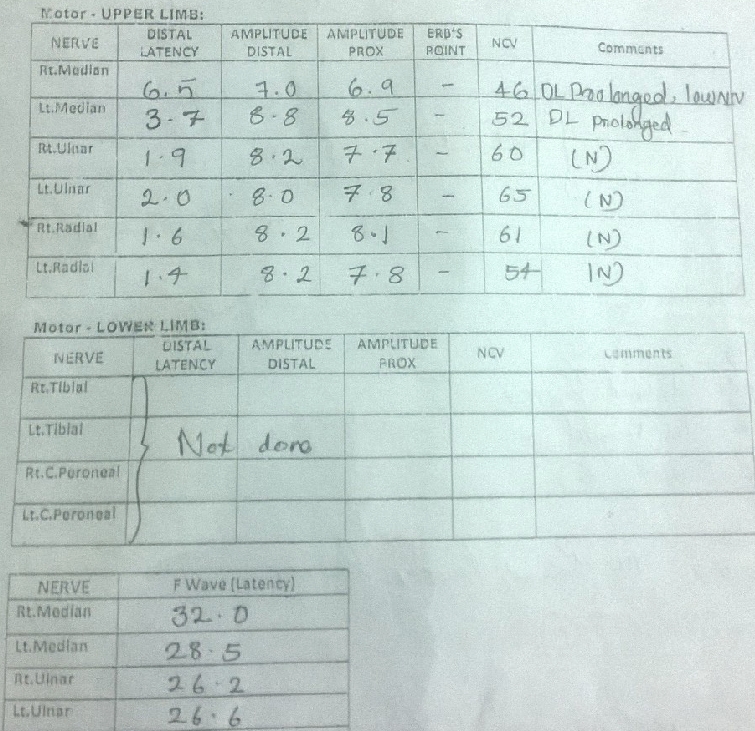 Motor - UPPER LIMB:
NERVE DISTAL LATENCY AMPLITUDE DISTAL AMPLITUDE PROX ERB'S POINT NCV Comments
Rt.Median 6.5 7.0 6.9 - 46 DL Proolonged, low NCV
Lt.Median 3.7 8.8 8.5 - 52 DL prolonged
Rt.Ulnar 1.9 8.2 7.7 - 60 (N)
Lt.Ulnar 2.0 8.0 7.8 - 65 (N)
Rt.Radial 1.6 8.2 8.1 - 61 (N)
Lt.Radial 1.4 8.2 7.8 - 54 (N)
Motor - LOWER LIMB:
NERVE DISTAL LATENCY AMPLITUDE DISTAL AMPLITUDE PROX NCV Comments
Rt.Tibial
Lt.Tibial Not done
Rt.C.Peroneal
Lt.C.Peroneal
NERVE F Wave (Latency)
Rt.Median 32.0
Lt.Median 28.5
Rt.Ulnar 26.2
Lt.Ulnar 26.6